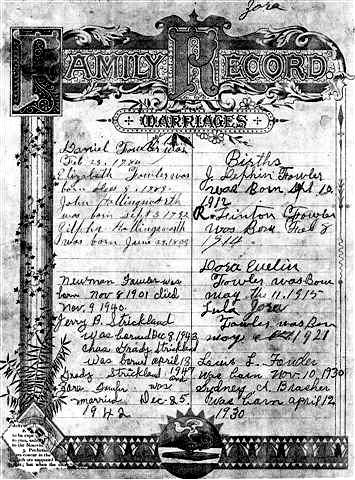 Zora
FAMILY RECORD.
MARRIAGES
Daniel Fowler was
Oct. 23. 
Elizabeth Fowler was
born 
John Hollingsworth
was born Sept 3 
Zilpha Hollingsworth
was born June 
Newman Fowler was
born Nov 8 1901 died
Nov. 9 1940.
Jerry B. Strickland
was born Dec 8 1943
Chas Grady Strickland
was born April 13
1947
Grady Strickland and
Zora Fowler was
married Dec 25.
1942
Births
J. Fowler
was Born 10
1912
R. Linton Fowler
was Born Feb 8
1914
Dora Evelin
Fowler was Born
may th 11. 1915
Lula Zora
Fowler, was Born
may 1921
Louis L. Fowler
was born Nov. 10, 1930
Sydney A. Brasher
was born April 12
1930